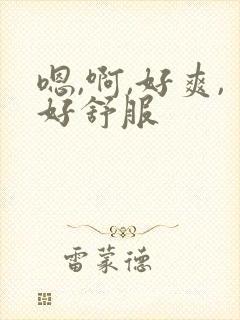 嗯,啊,好爽,
好舒服
雷蒙德